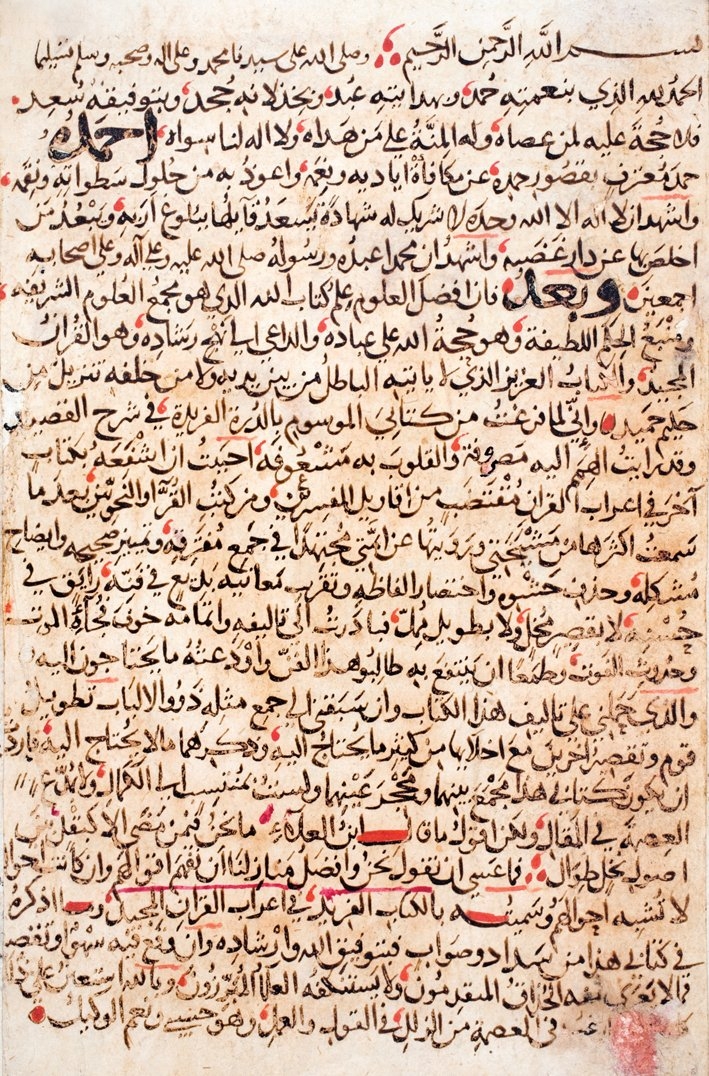 بسم الله الرحمن الرحيم وصلى الله على سيدنا محمد وعلى اله وصحبه وسلم تسليما
الحمد لله الذي بنعمته حمد وبهدايته عبد وبخذلانه جحد وبتوفيقه سعد
فلا حجة عليه لمن عصاه وله المنة على من هداه ولا اله لنا سواه احمده
حمد معترف بقصور حمده عن مكافأة أياديه ونعمه واعوذ به من حلول سطواته ونقمه
واشهد ان لا اله الا الله وحده لا شريك له شهادة يسعد قايلها ببلوغ اربه ويبعد من
اخلصها عن دار غضبه واشهد ان محمدا عبده ورسوله صلى الله عليه وعلى آله وعلى اصحابه
اجمعين وبعد فان افضل العلوم علم كتاب الله الذي هو مجمع العلوم الشريفه
ومنبع الحكم اللطيفة وهو حجة الله على عباده والداعي الى نهج رشاده وهو القرآن
المجيد والكتاب العزيز الذي لا ياتيه الباطل من بين يديه ولا من خلفه تنزيل من
حكيم حميد واني لما فرغت من كتابي الموسوم بالدرة الفريدة في شرح القصيد
وقد رايت الهمم اليه مصروفة والقلوب به مشغوفة احببت ان اشفعه بكتاب
آخر في اعراب القرآن مقتضب من اقاويل المفسرين ومن كتب القراء والنحويين بعد ما
سمعت اكثرها من مشيختي ورويتها عن ائمتي مجتهدا في جمع مفترقه وتمييز صحيحه وايضاح
مشكله وحذف حشوه واختصار الفاظه وتقريب معانيه بديع في فنه رائق في
حسنه لا بقصير مخل ولا بطويل ممل فبادرت الى تاليفه واتمامه خوف فجأة الموت
وحدوث الفوت وطمعا ان ينتفع به طالبو هذا الفن واودعته ما يحتاجون اليه
والذي حملني على تاليف هذا الكتاب وان سبقني الى جمع مثله ذوو الالباب تطويل
قوم وتقصير آخرين مع اخلالها من كثير ما يحتاج اليه وذكرهما ما لا يحتاج اليه فاردت
ان يكون كتابي هذا مجمع بينهما ومحجر عينهما ولست بمنتسب الى الكمال ولا مدع
العصمة في المقال ولكن اقول كما قال ابن العلاء ما نحن فيمن مضى الا كبقل في
اصول نخل طوال فما عسى ان نقول نحن وافضل منازلنا ان نفهم اقوالهم وان كانت احوالنا
لا تشبه احوالهم وسميته بالكتاب الفريد في اعراب القرآن المجيد وما اذكره
في كتابي هذا من سداد وصواب فبتوفيق الله وارشاده وان وقع فيه سهو او تقصير
فما لا يعرى منه الحذاق المتقدمون ولا يستنكفه العلماء المبرزون وبالله استعين على ذلك
في العصمة من الزلل في القول والعمل وهو حسبي ونعم الوكيل